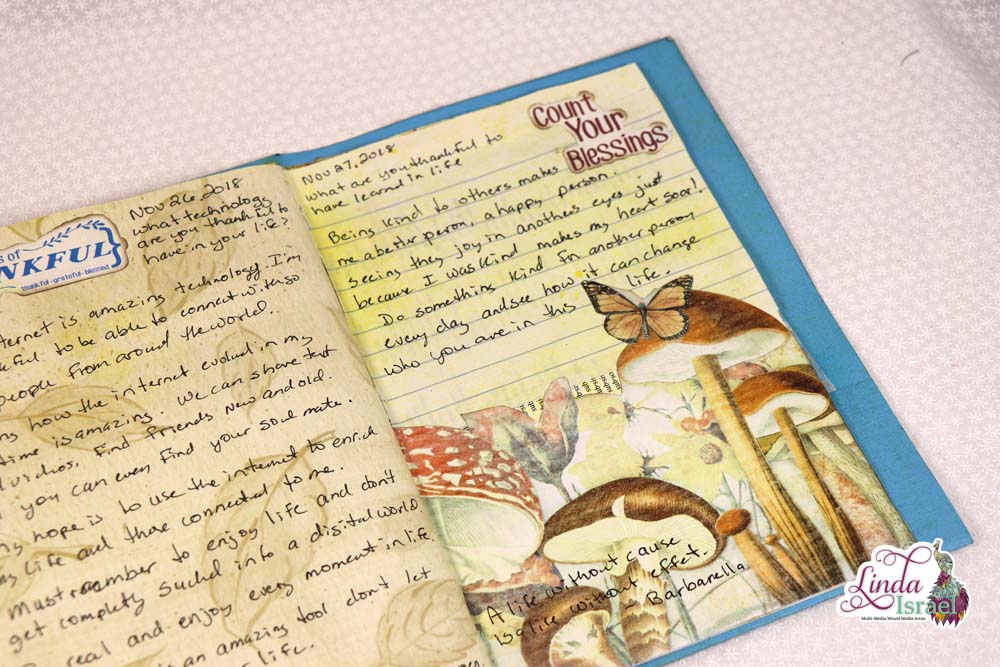 Nov 26, 2018
what technology
are you thankful to
have in your life?
s of
NKFUL
thankful-grateful-blessed
ternet is amazing technology. I'm
kful to be able to connect with so
people from around the world.
ng how the internet evolved in my
time is amazing. We can share text
vidios, Find Friends New and old.
you can even find your soul mate.
my hope is to use the internet to enrich
my life and those connected to me.
Must remember to enjoy life and don't
get completly suckd into a digital world.
real and enjoy every moment in life.
is an amazing tool don't let
life.
Count
Your
Blessings
Nov 27, 2018
what are you thankful to
have learned in life
Being kind to others makes
me a better person, a happy person.
seeing they joy in anothers eyes just
because I was kind makes my heart soar!
Do something kind for another person
every day and see how it can change
who you are in this life.
subsp
subsp
subs
A life without cause
Is a life without effet.
Barbarella
Linda
Israel
Multi-Media Mixed Media Artist